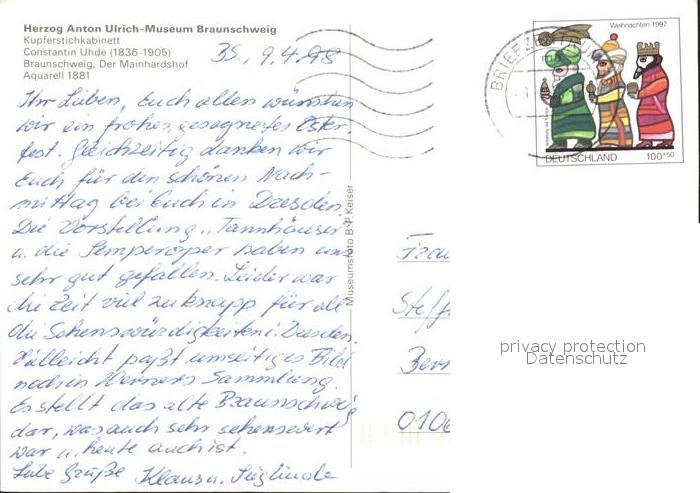 Herzog Anton Ulrich-Museum Braunschweig
Kupferstichkabinett
Constantin Uhde (1836-1905)
Braunschweig, Der Mainhardshof
Aquarell 1881
BS., 9.4.98
Ihr Lieben, Euch allen wünschen
wir ein frohes, gesegnetes Oster-
fest. Gleichzeitig danken wir
Euch für den schönen Nach-
mittag bei Euch in Dresden.
Die Vorstellung „Tannhäuser
u. die Semperoper haben uns
sehr gut gefallen. Leider war
die Zeit viel zu knapp für all
die Sehenswürdigkeiten i. Dresden.
Vielleicht paßt umseitiges Bild
noch in Werners Sammlung.
Es stellt das alte Braunschweig
dar, was auch sehr sehenswert
war u. heute auch ist.
Liebe Grüße Klaus u. Sieglinde
Museumsfoto B.P. Keiser
BRIEFZ
Weihnachten 1997
DEUTSCHLAND 100+50
Frau
Steff
Bern
010
privacy protection
Datenschutz